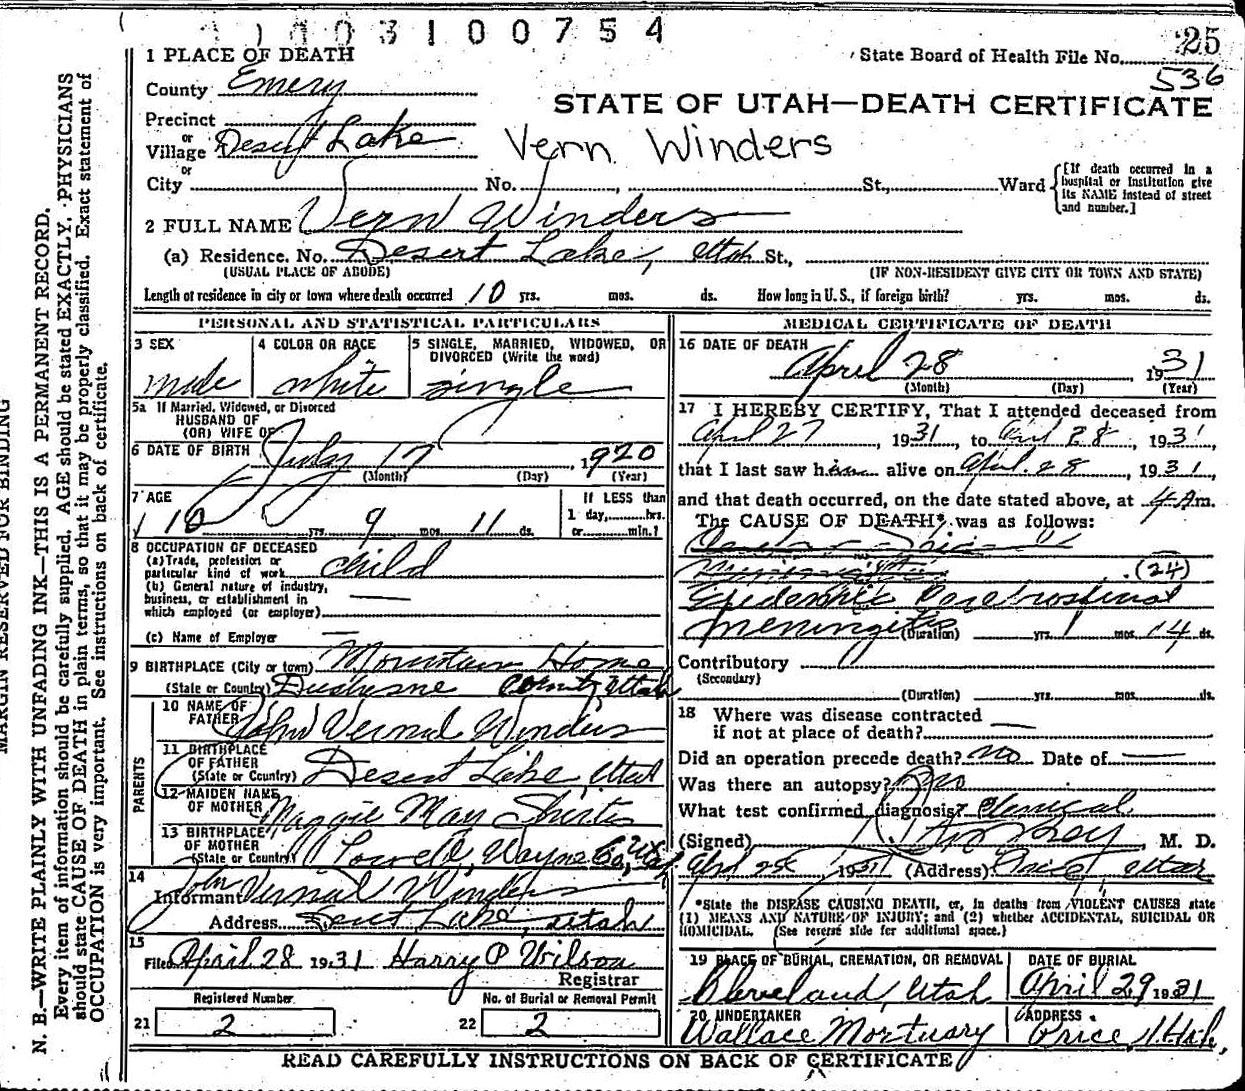 1003100754
25
1 PLACE OF DEATH
State Board of Health File No.
536
County Emery
STATE OF UTAH—DEATH CERTIFICATE
Precinct
or
Village Desert Lake
Vern Winders
or
City No. , St., Ward
[If death occurred in a hospital or institution give its NAME instead of street and number.]
2 FULL NAME Vern Winders
(a) Residence. No. Desert Lake, Utah St.,
(USUAL PLACE OF ABODE) (IF NON-RESIDENT GIVE CITY OR TOWN AND STATE)
Length of residence in city or town where death occurred 10 yrs. mos. ds. How long in U. S., if foreign birth? yrs. mos. ds.
PERSONAL AND STATISTICAL PARTICULARS
3 SEX 4 COLOR OR RACE 5 SINGLE, MARRIED, WIDOWED, OR DIVORCED (Write the word)
male white single
5a If Married, Widowed, or Divorced
HUSBAND OF
(OR) WIFE OF
6 DATE OF BIRTH July 17 1920
(Month) (Day) (Year)
7 AGE If LESS than
1 day,......hrs.
10 yrs. 9 mos. 11 ds. or......min.?
8 OCCUPATION OF DECEASED
(a) Trade, profession or
particular kind of work child
(b) General nature of industry,
business, or establishment in
which employed (or employer)
(c) Name of Employer
9 BIRTHPLACE (City or town) Mountain Home
(State or Country) Duchesne County, Utah
PARENTS
10 NAME OF
FATHER John Vernal Winders
11 BIRTHPLACE
OF FATHER
(State or Country) Desert Lake, Utah
12 MAIDEN NAME
OF MOTHER Maggie May Shirts
13 BIRTHPLACE
OF MOTHER
(State or Country) Lowell, Wayne Co, Utah
14
Informant John Vernal Winders
Address Desert Lake, Utah
15
Filed April 28 1931 Harry P Wilson
Registrar
Registered Number No. of Burial or Removal Permit
21 2 22 2
MEDICAL CERTIFICATE OF DEATH
16 DATE OF DEATH
April 28 1931
(Month) (Day) (Year)
17 I HEREBY CERTIFY, That I attended deceased from
April 27, 1931, to April 28, 1931,
that I last saw him alive on April. 28, 1931,
and that death occurred, on the date stated above, at 4 A.m.
The CAUSE OF DEATH* was as follows:
(24)
Epidemic Cerebrospinal
meningitis (Duration) yrs. 1 mos. 14 ds.
Contributory
(Secondary)
(Duration) yrs. mos. ds.
18 Where was disease contracted
if not at place of death?
Did an operation precede death? no Date of
Was there an autopsy? No
What test confirmed diagnosis? Clinical
(Signed) M. D.
April 28 1931 (Address) Price, Utah
*State the DISEASE CAUSING DEATH, or, in deaths from VIOLENT CAUSES state
(1) MEANS AND NATURE OF INJURY; and (2) whether ACCIDENTAL, SUICIDAL OR
HOMICIDAL. (See reverse side for additional space.)
19 PLACE OF BURIAL, CREMATION, OR REMOVAL DATE OF BURIAL
Cleveland, Utah April 29 1931
20 UNDERTAKER ADDRESS
Wallace Mortuary Price, Utah,
READ CAREFULLY INSTRUCTIONS ON BACK OF CERTIFICATE
MARGIN RESERVED FOR BINDING
N. B.—WRITE PLAINLY WITH UNFADING INK—THIS IS A PERMANENT RECORD.
Every item of information should be carefully supplied. AGE should be stated EXACTLY. PHYSICIANS
should state CAUSE OF DEATH in plain terms, so that it may be properly classified. Exact statement of
OCCUPATION is very important. See instructions on back of certificate.